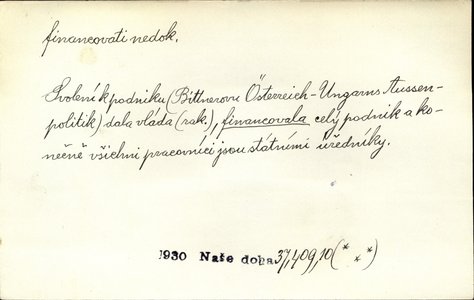 financovati nedok.
Svolení k podniku (Bittnerovu Österreich-Ungarns Aussen-
politik) dala vláda (rak.), financovala celý podnik a ko-
nečně všichni pracovníci jsou státními úředníky.
1930 Naše doba 37,409,10 (* * *)